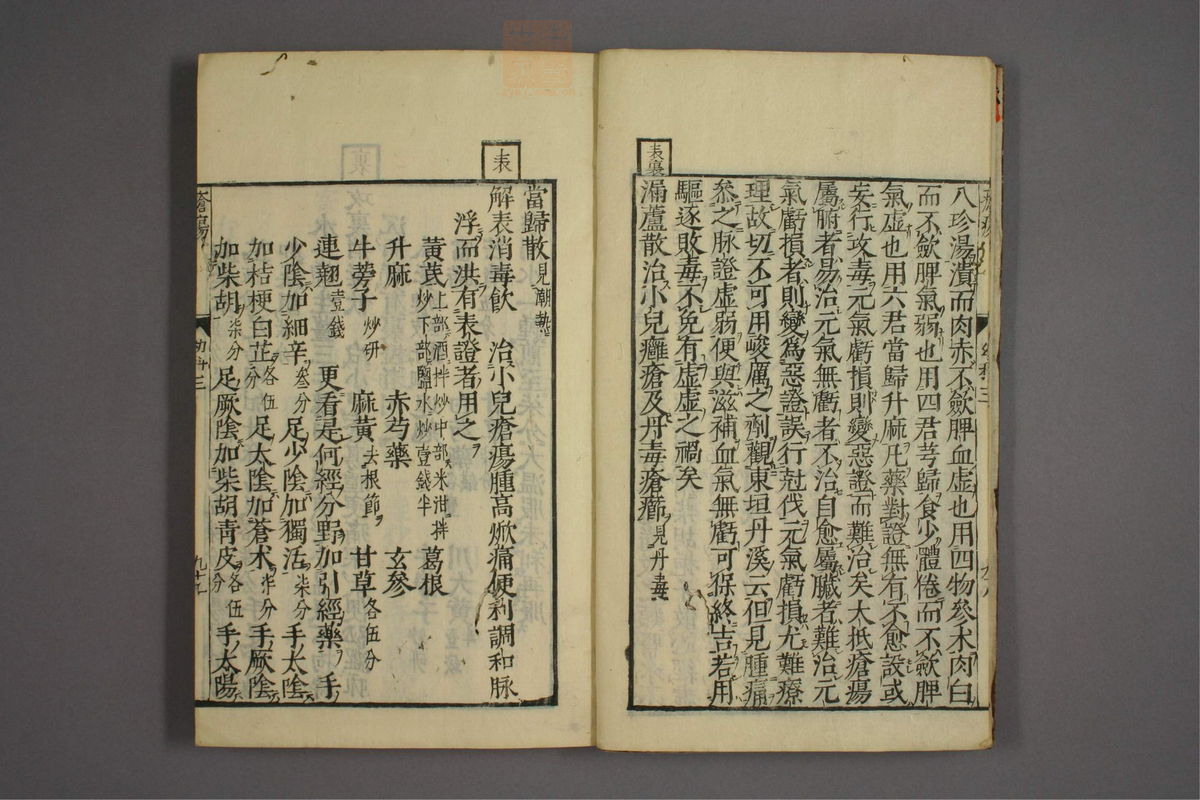 八珍湯潰而肉赤不歛脾血虛也用四物參术肉白
而不歛脾氣弱也用四君芎歸食少體倦而不歛脾
氣虛也用六君當歸升麻凡藥對證無有不愈設或
妄行攻毒元氣虧損則變惡證而難治矣大抵瘡瘍
屬腑者易治元氣無虧者不治自愈屬臟者難治元
氣虧損者則變爲惡證誤行尅伐元氣虧損尤難療
理故切不可用峻厲之劑觀東垣丹溪云但見腫痛
叅之脉證虛弱便與滋補血氣無虧可保終吉若用
驅逐敗毒不免有虛虛之禍矣
表裏
漏蘆散治小兒癰瘡及丹毒瘡癤見丹毒
當歸散見潮熱
表
解表消毒飲 治小兒瘡瘍腫高焮痛便利調和脉
浮而洪有表證者用之
黃芪上部酒拌炒中部米泔拌炒下部鹽水炒壹錢半 葛根
升麻 赤芍藥 玄參
牛蒡子炒研 麻黃去根節 甘草各伍分
連翹壹錢 更看是何經分野加引經藥 手
少陰加細辛叁分足少陰加獨活柒分手太陰
加桔梗白芷各伍分足太陰加蒼术柒分手厥陰
加柴胡柒分足厥陰加柴胡靑皮各伍分手太陽
瘡瘍
幼科三
九十九